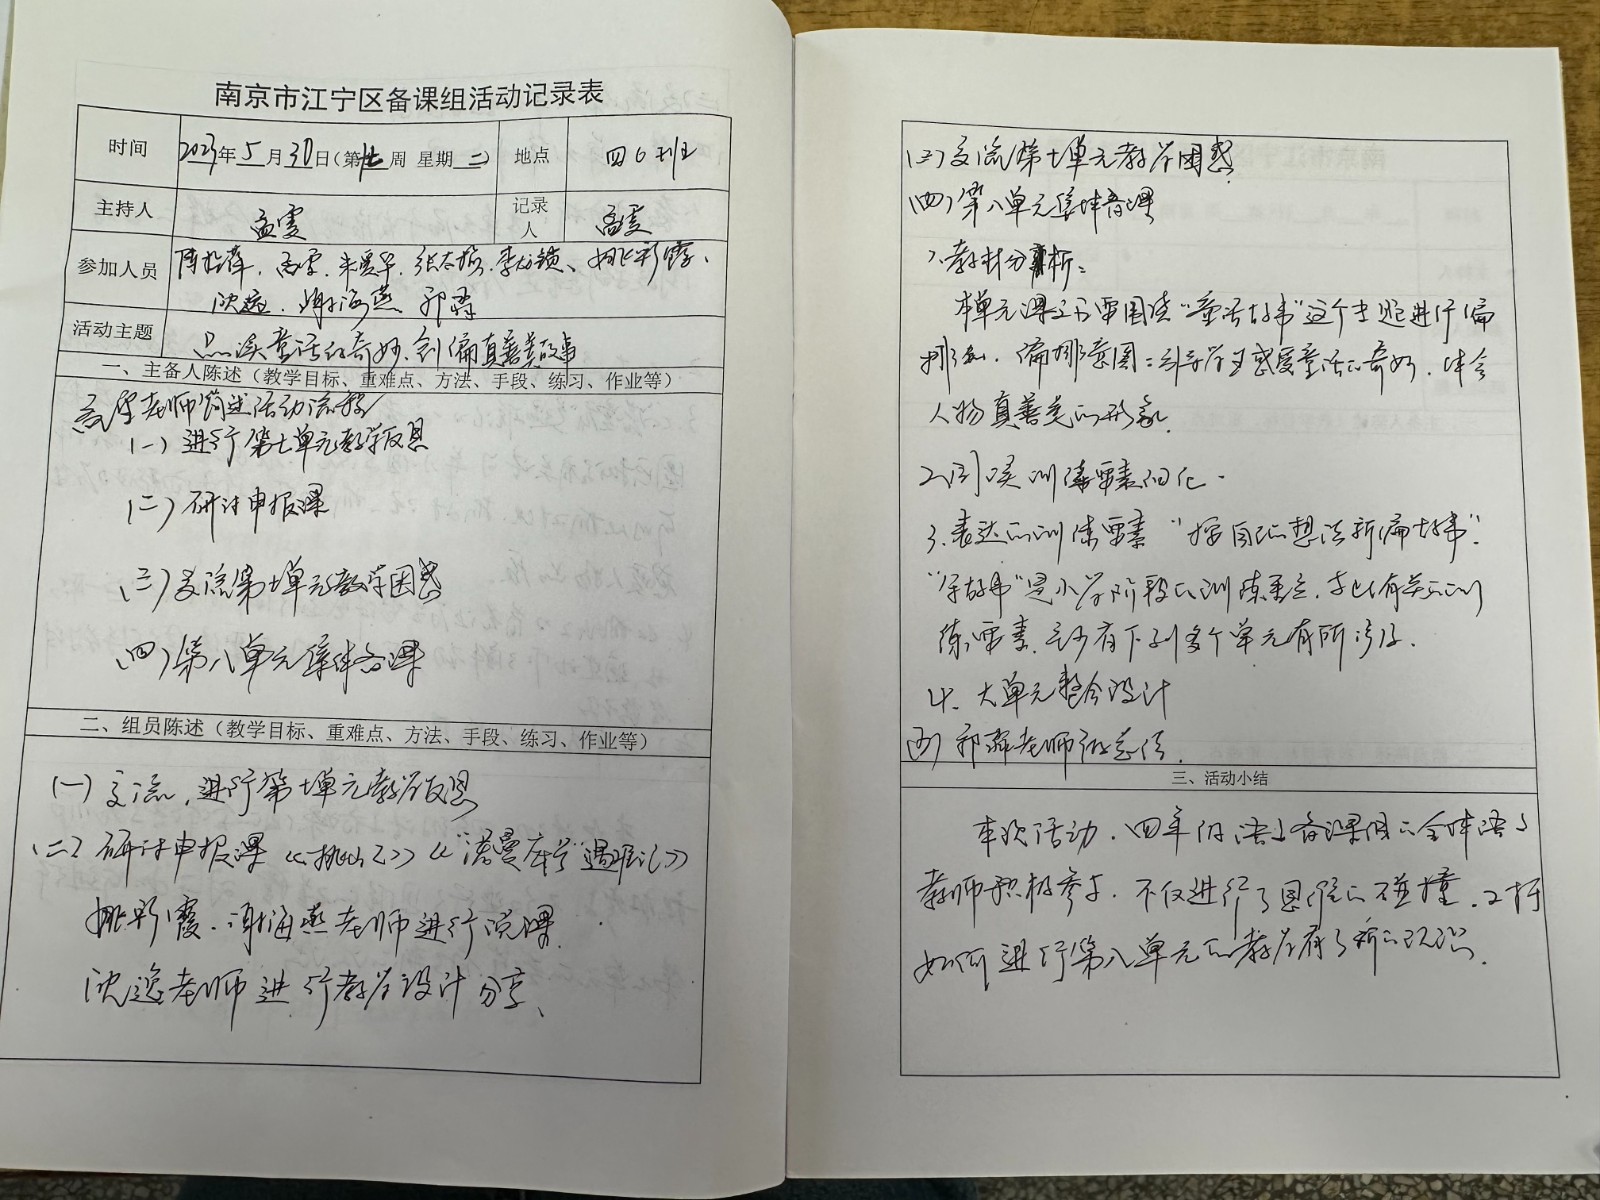 南京市江宁区备课组活动记录表
时间 2023年5月30日(第 周 星期二) 地点 四6班
主持人 孟雯 记录人 高雯
参加人员 高雯、朱爱华、张 、李 、姚彩霞、
沈逸、谢海燕、郭霞
活动主题 品读童话的奇妙,创编真善美故事
一、主备人陈述(教学目标、重难点、方法、手段、练习、作业等)
老师简述活动流程
(一)进行第七单元教学反思
(二)研讨申报课
(三)交流第七单元教学困惑
(四)第八单元集体备课
二、组员陈述(教学目标、重难点、方法、手段、练习、作业等)
(一)交流,进行第七单元教学反思
(二)研讨申报课《挑山工》《“诺曼底号”遇难记》
姚彩霞、谢海燕老师进行说课
沈逸老师进行教学设计分享、
(三)交流第七单元教学困惑
(四)第八单元集体备课
1、教材分析:
本单元课文主要围绕“童话故事”这个主题进行编
排的。编排意图:引导学生感受童话的奇妙,体会
人物真善美的形象。
2、阅读训练要素细化。
3、表达的训练要素“按自己的想法新编故事”。
“写故事”是小学阶段的训练重点,与此有关的训
练要素,至少有下列多个单元有所涉及.
4、大单元整合设计
郭霞老师做总结
三、活动小结
本次活动,四年级语文备课组的全体语文
教师积极参与,不仅进行了思维的碰撞,又对
如何进行第八单元的教学有了新的认识.